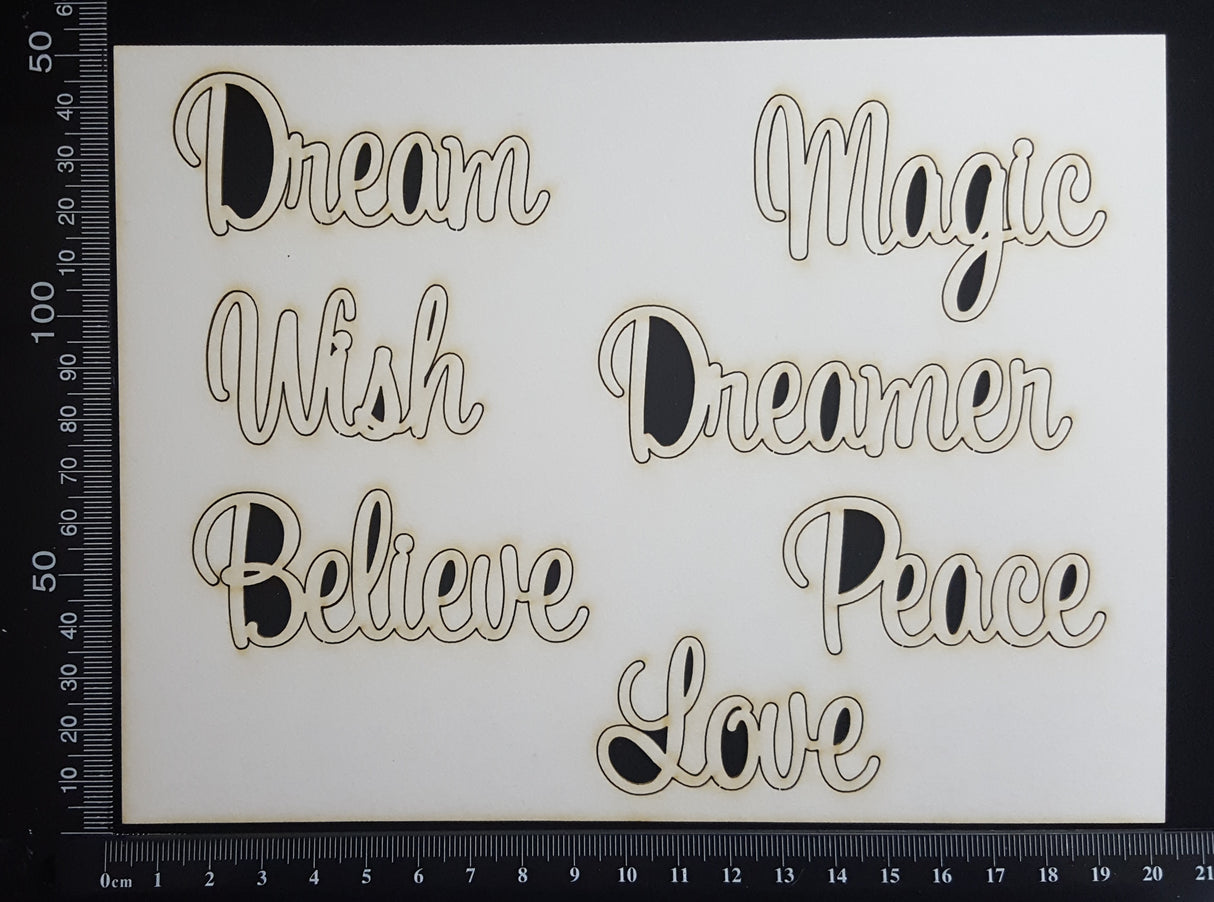 Dream
Magic
Wish
Dreamer
Believe
Peace
Love
6
50
40
30
20
10
100
90
80
70
60
50
40
30
20
10
0cm 1 2 3 4 5 6 7 8 9 10 11 12 13 14 15 16 17 18 19 20 21